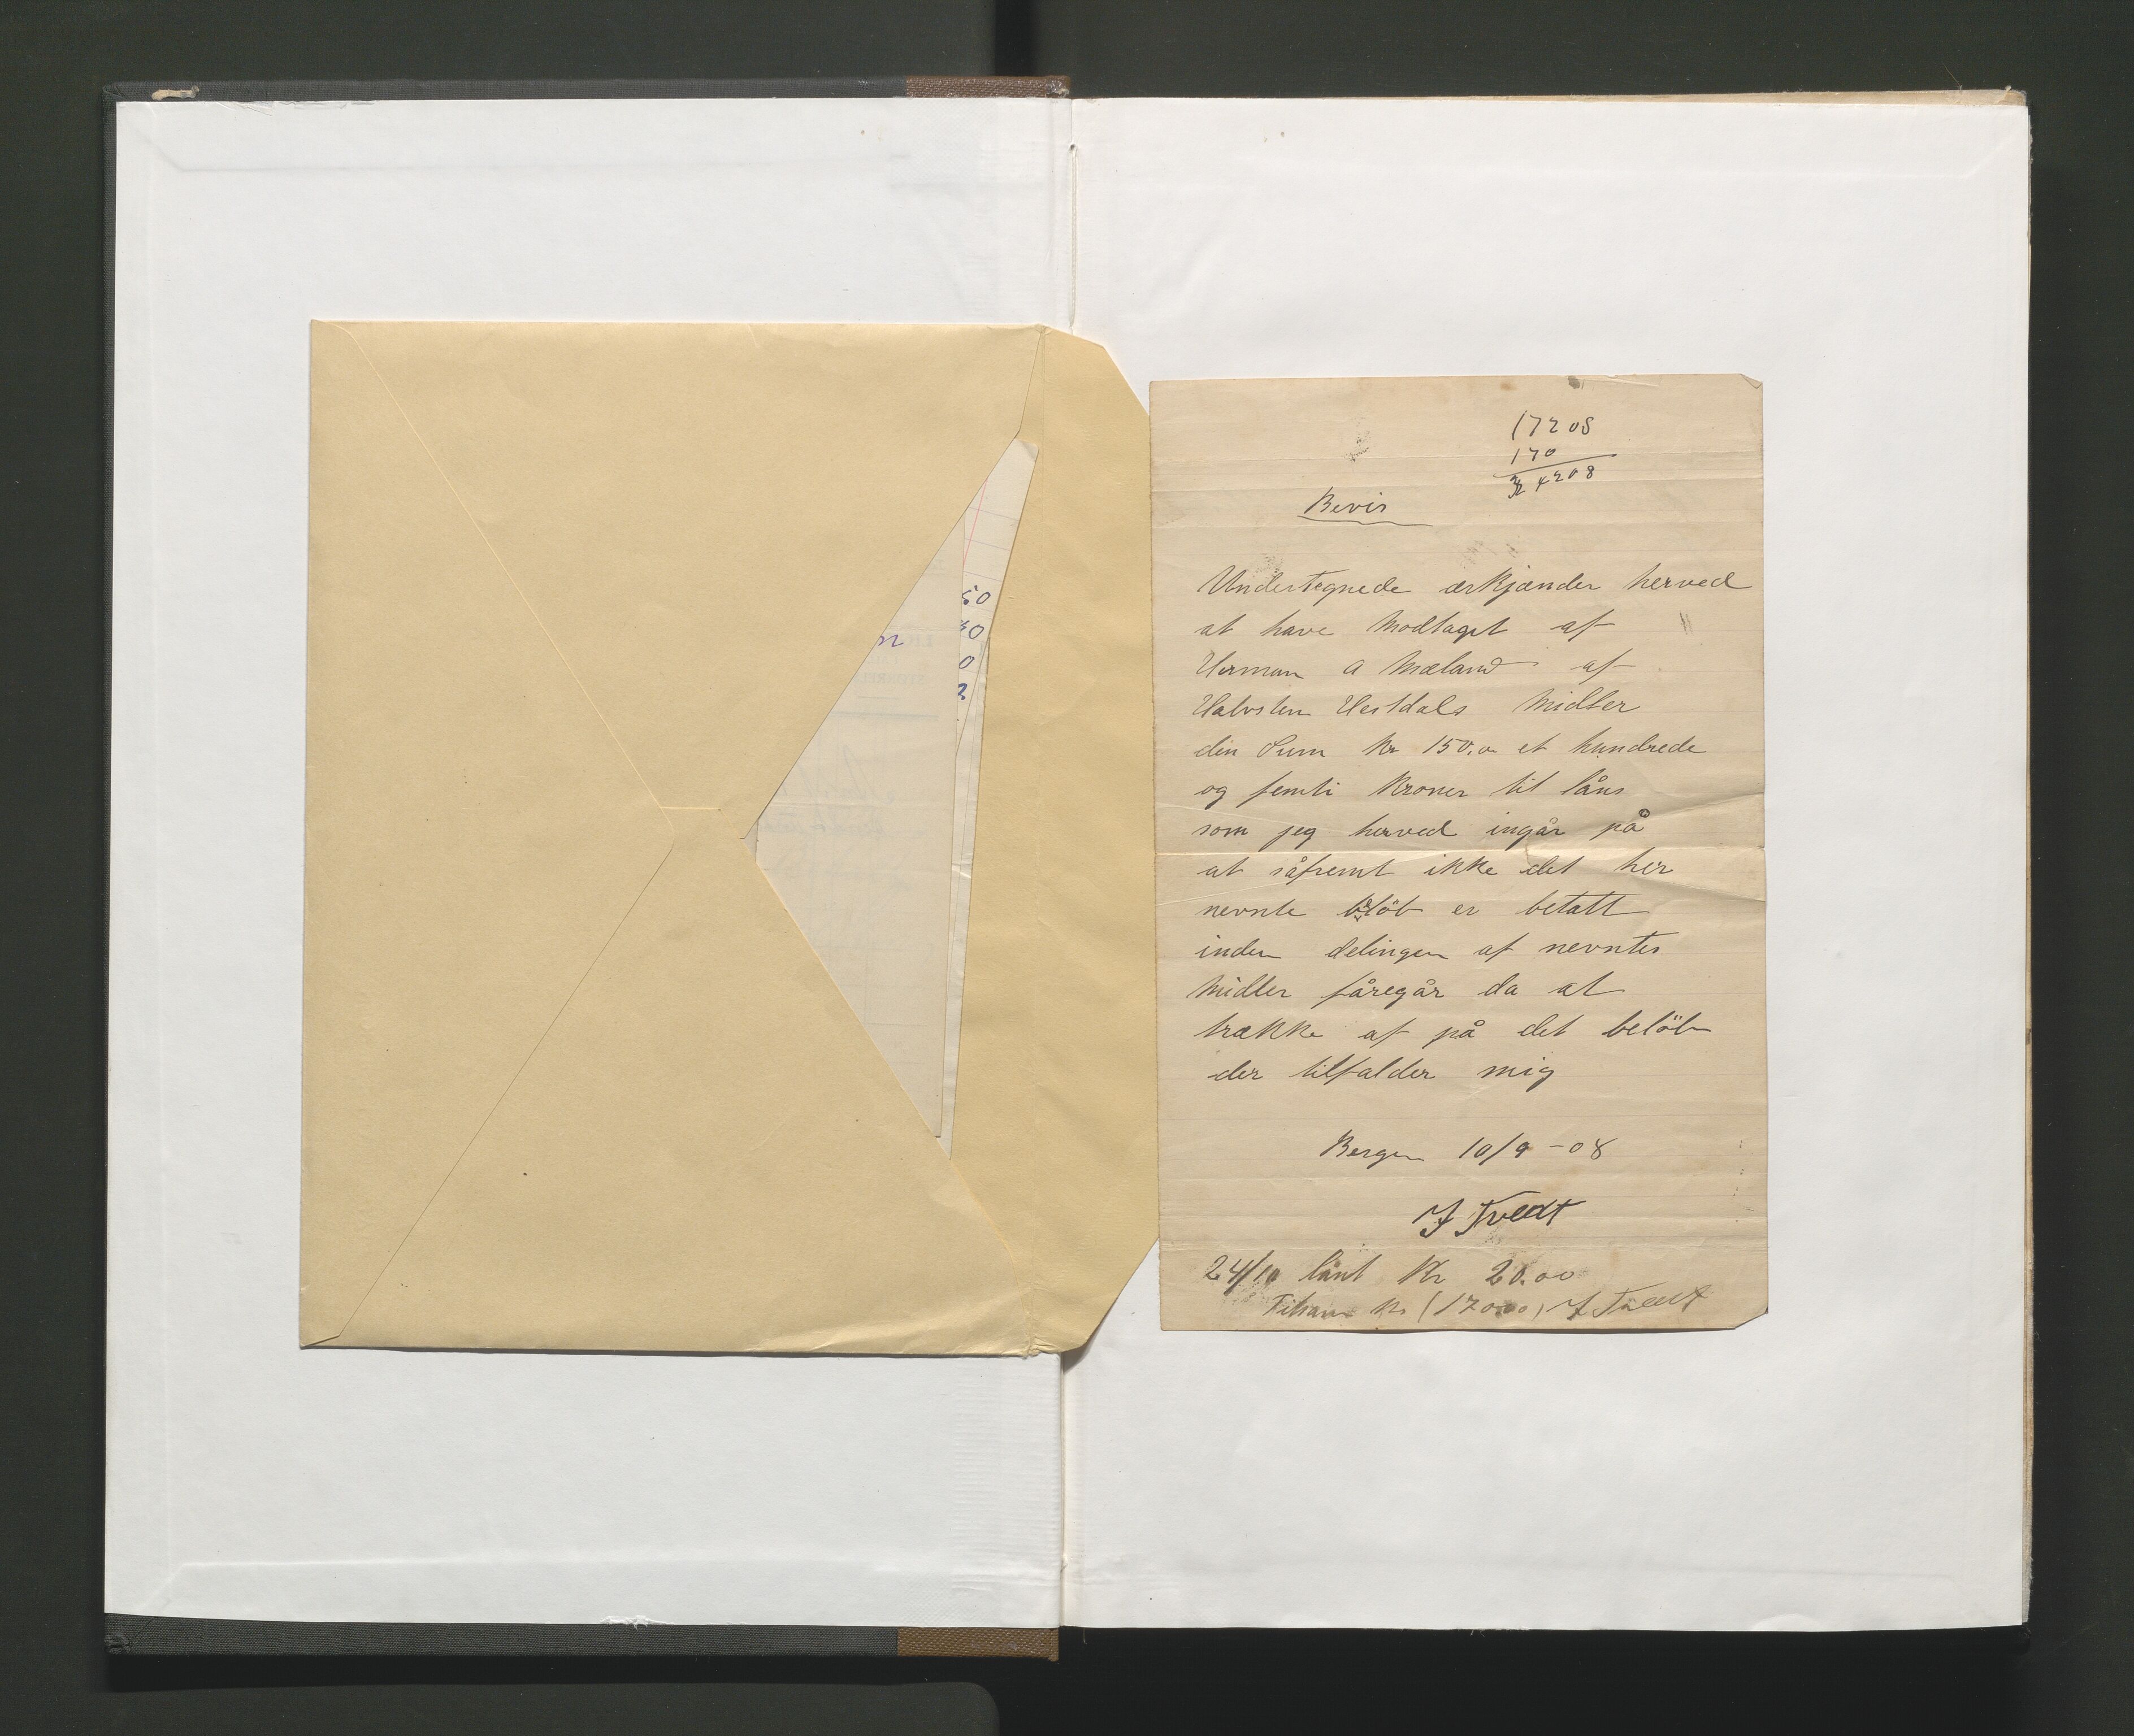 50
40
0
2
172 08
170
34208
Bevis
Undertegnede ærkjænder herved
at have Modtaget af
Herman A Mæland af
Halvsten Hestdals Midler
den Sum Kr 150.00 et hundrede
og femti Kroner til låns
som jeg herved ingår på
at såfremt ikke det her
nevnte belöb er betalt
inden delingen af nevntes
Midler fåregår da at
trække af på det belöb
der tilfalder mig
Bergen 10/9 - 08
J Tvedt
24/10 lånt Kr 20.00
Tilsam Kr (170.00) J Tvedt